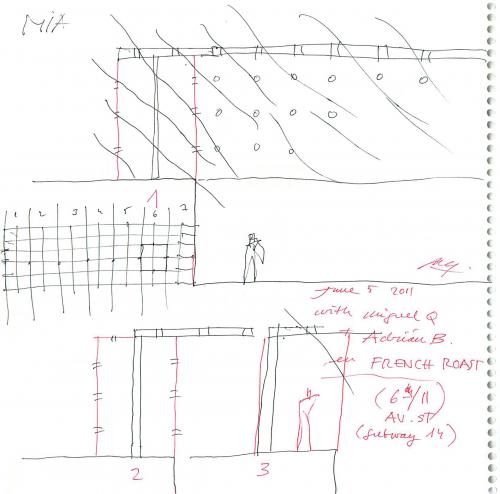 MIA
1
1 2 3 4 5 6 7
June 5 2011
with Miguel Q
+ Adrián B.
en FRENCH ROAST
(6th/11
AV. ST
(Subway 14)
2 3